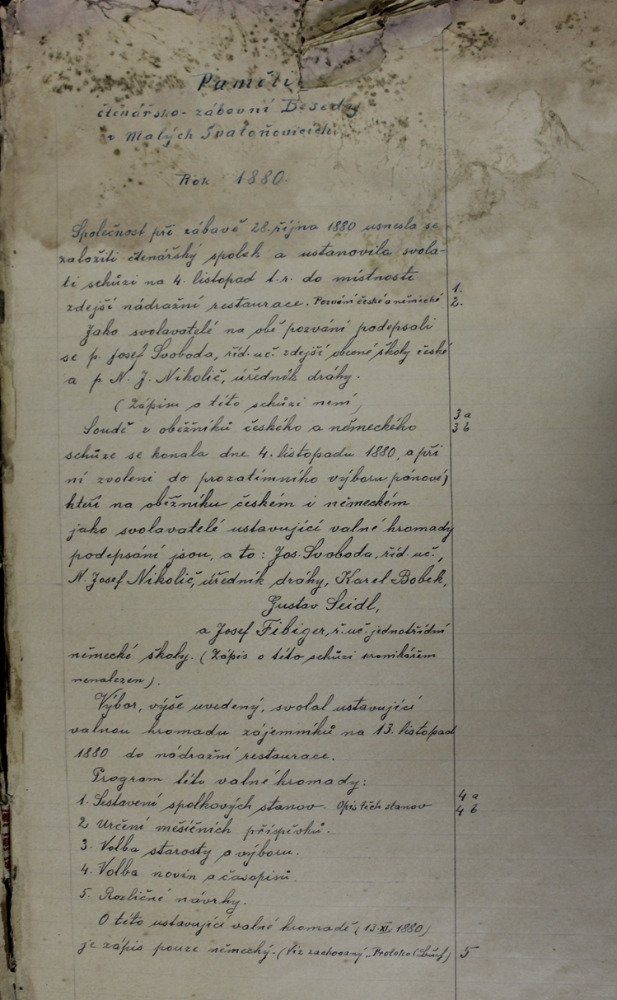 Paměti
čtenářsko-zábavní Besedy
v Malých Svatoňovicích.
Rok 1880.
Společnost při zábavě 28. října 1880 usnesla se
založiti čtenářský spolek a ustanovila svola-
ti schůzi na 4. listopad t.r. do místnosti
zdejší nádražní restaurace. Pozvání české a německé
1.
2.
Jako svolavatelé na obě pozvání podepsali
se p. Josef Svoboda, říd. uč. zdejší obecné školy české
a p. N. J. Nikolič, úředník dráhy.
(Zápisu o této schůzi není)
3a
Soudě z oběžníků českého a německého
3b
schůze se konala dne 4. listopadu 1880, a při
ní zvoleni do prozatímního výboru pánové,
kteří na oběžníku českém i německém
jako svolavatelé ustavující valné hromady
podepsáni jsou, a to: Jos. Svoboda, říd. uč.,
N. Josef Nikolič, úředník dráhy, Karel Bobek,
Gustav Seidl,
a Josef Fibiger, ř. uč. jednotřídní
německé školy. (Zápis o této schůzi kronikářem
nenalezen).
Výbor, výše uvedený, svolal ustavující
valnou hromadu zájemníků na 13. listopad
1880 do nádražní restaurace.
Program této valné hromady:
1. Sestavení spolkových stanov. Opis těch stanov
4a
4b
2. Určení měsíčních příspěvků.
3. Volba starosty a výboru.
4. Volba novin a časopisů.
5. Rozličné návrhy.
O této ustavující valné hromadě (13 XI. 1880)
je zápis pouze německý. (Viz zachovaný
5